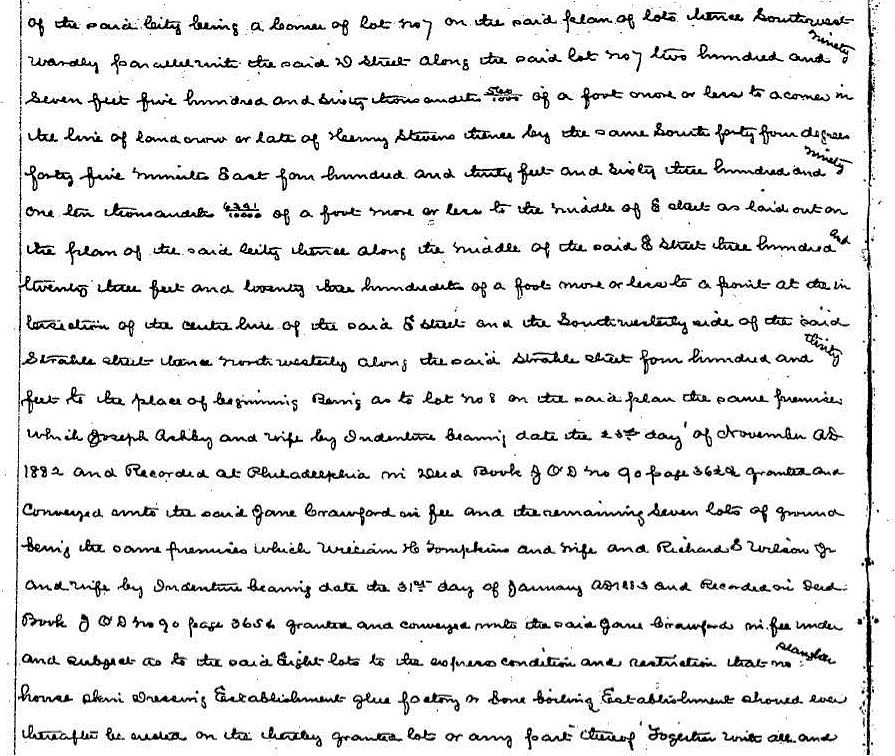 of the said City being a corner of lot No 7 on the said plan of lots thence Southwest
wardly parallel with the said D Street along the said lot No 7 two hundred and ninety
Seven feet five hundred and sixty thousandths 560/1000 of a foot more or less to a corner in
the line of land now or late of Henry Stevens thence by the same South forty four degrees
forty five minutes East four hundred and thirty feet and sixty three hundred and ninety
one ten thousandths 6391/10000 of a foot more or less to the middle of E street as laid out on
the plan of the said City thence along the middle of the said E Street three hundred and
twenty three feet and twenty three hundredths of a foot more or less to a point at the in
tersection of the centre line of the said E Street and the Southwesterly side of the said
Strahle street thence Northwesterly along the said Strahle street four hundred and thirty
feet to the place of beginning Being as to lot No 8 on the said plan the same premises
which Joseph Ashby and wife by Indenture bearing date the 23rd day of November AD
1882 and Recorded at Philadelphia in Deed Book J O D No 90 page 362 &c granted and
Conveyed unto the said Jane Crawford in fee and the remaining Seven lots of ground
being the same premises which William H Tompkins and wife and Richard S Wilson Jr
and wife by Indenture bearing date the 31st day of January AD 1883 and Recorded in Deed
Book J O D No 90 page 365 &c granted and conveyed unto the said Jane Crawford in fee under
and subject as to the said Eight lots to the express condition and restriction that no slaughter
house skin Dressing Establishment glue factory or bone boiling Establishment should ever
thereafter be erected on the thereby granted lots or any part thereof Together with all and